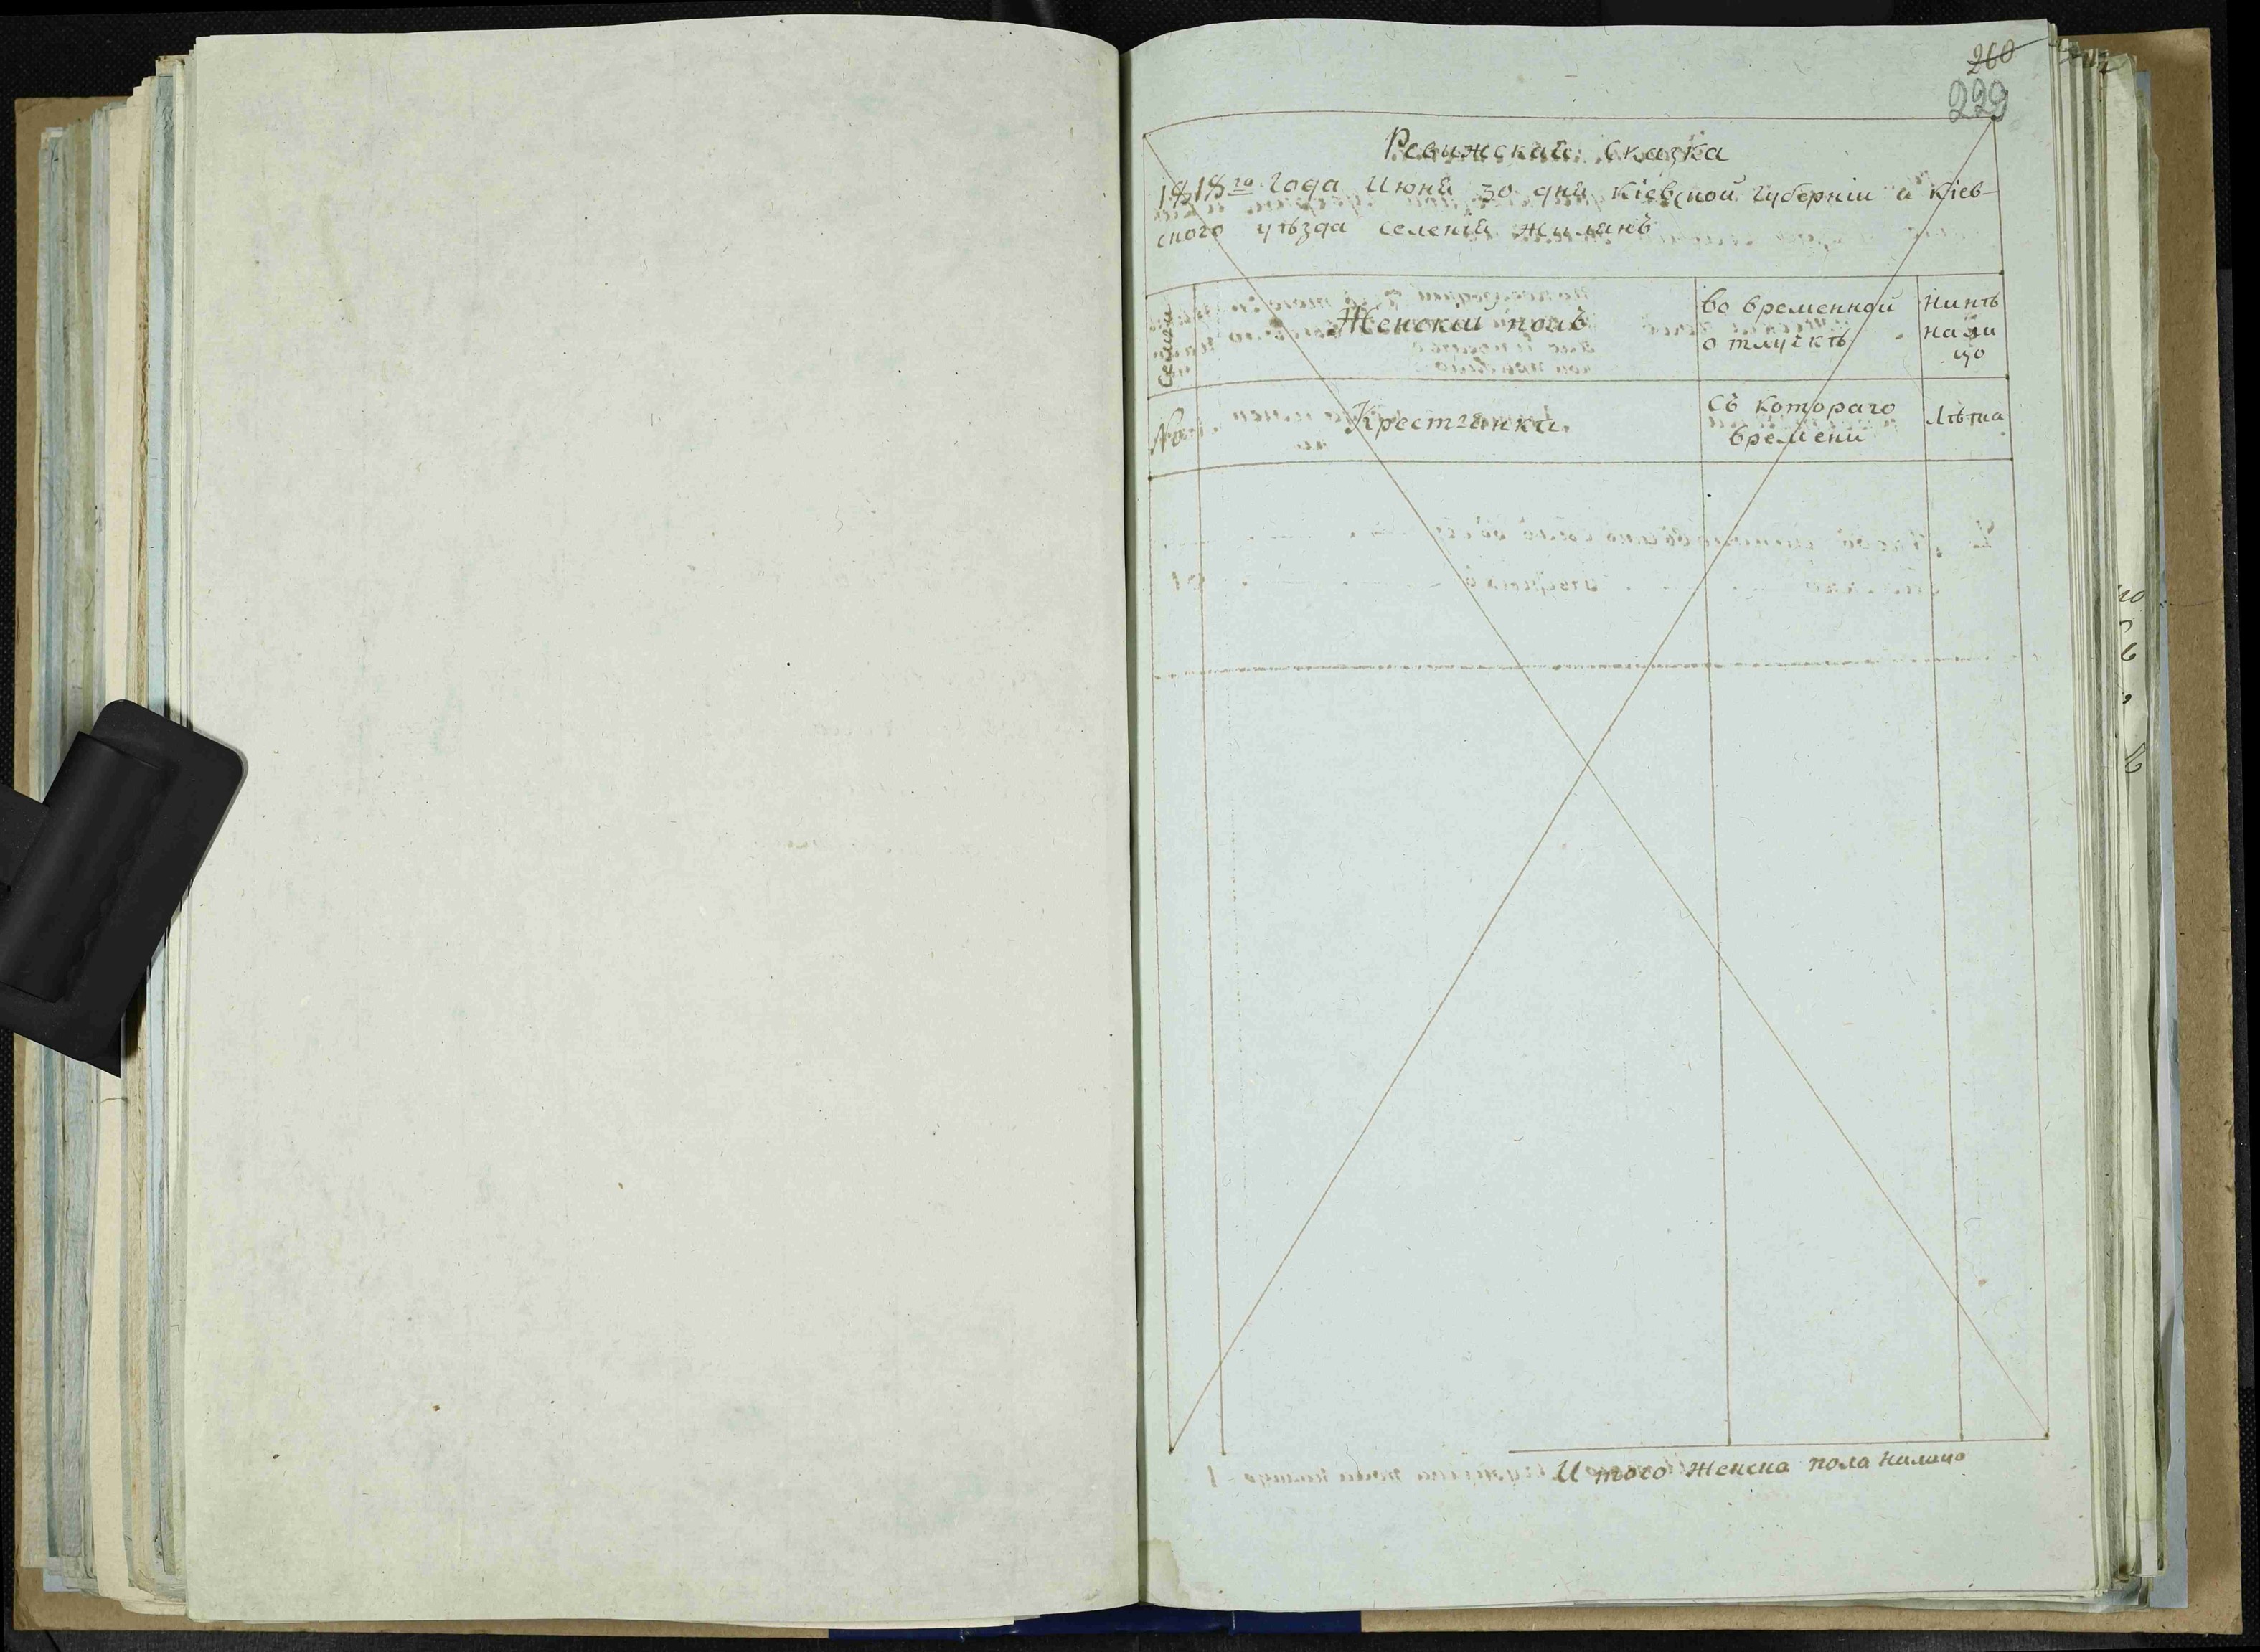 260
229
Ревижская Сказка
1818го года Июня 30 дня Кіевской губерніи и Кіев-
ского уѣзда селенія Жилянъ
Семьи
Женскій полъ
во временной
отлучкѣ
Нинѣ
нали
цо
№
Крестьянки
Съ котораго
времени
Лѣта
Итого женска пола налицо